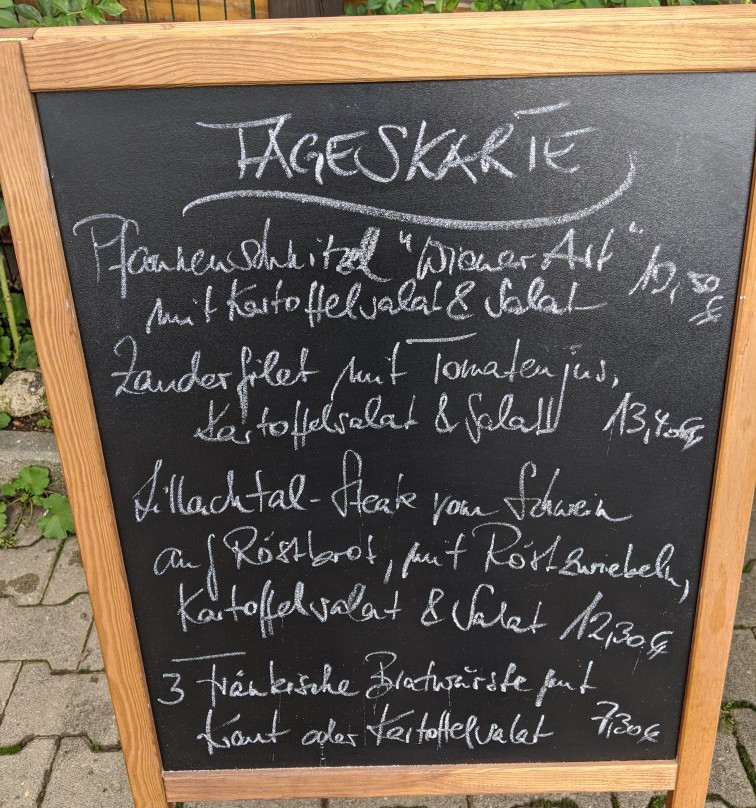 TAGESKARTE
Pfannenschnitzel "Wiener Art" 10,50
mit Kartoffelsalat & Salat €
Zanderfilet mit Tomatenjus,
Kartoffelsalat & Salat 13,40€
Lillachtal-Steak vom Schwein
auf Röstbrot, mit Röstzwiebeln,
Kartoffelsalat & Salat 12,30€
3 Fränkische Bratwürste mit
Kraut oder Kartoffelsalat 7,30€